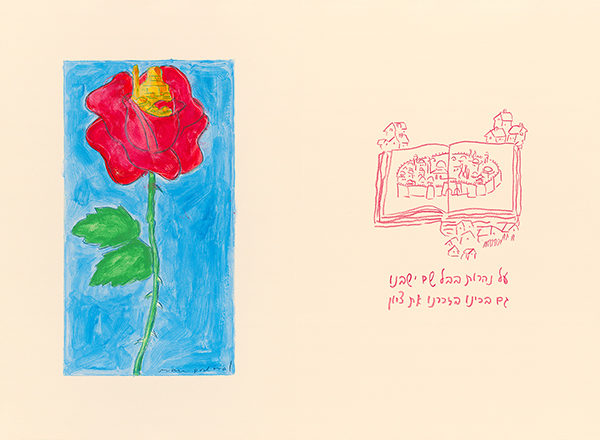 על נהרות בבל שם ישבנו
גם בכינו בזכרנו את ציון